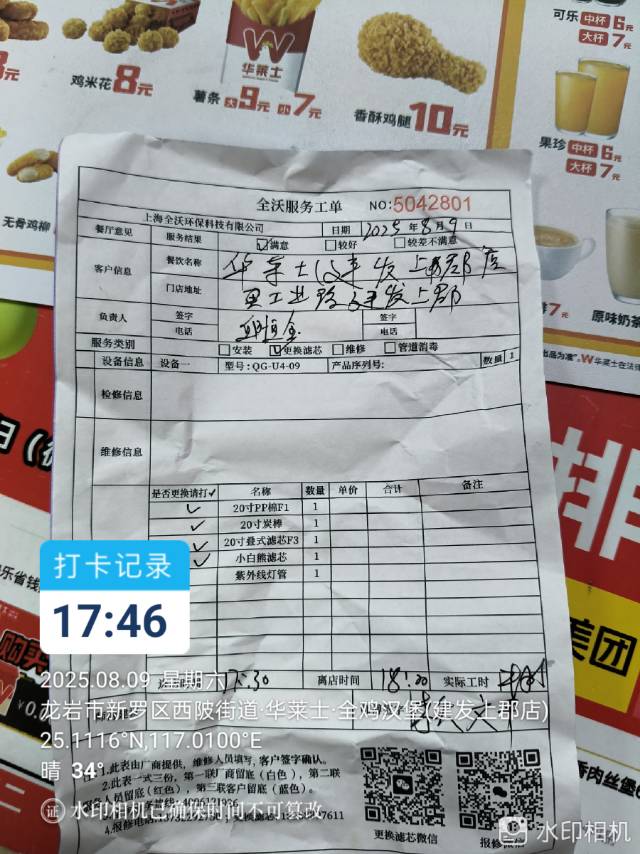 可乐 中杯6元
大杯7元
鸡米花8元
华莱士
薯条 大9元 小7元
香酥鸡腿10元
果珍 中杯6元
大杯7元
无骨鸡柳
原味奶茶
全沃服务工单 NO:5042801
上海全沃环保科技有限公司 日期 2025年8月9日
餐厅意见 服务结果 满意 较好 较差不满意
客户信息 餐饮名称 华莱士(建发上郡店
门店地址 建发上郡
负责人 签字 签字
电话 电话
服务类别 安装 更换滤芯 维修 管道消毒
设备信息 设备一 型号:QG-U4-09 产品序列号: 数量 1
检修信息
维修信息
是否更换请打✓ 名称 数量 单价 合计 备注
✓ 20寸PP棉F1 1
✓ 20寸炭棒 1
✓ 20寸叠式滤芯F3 1
✓ 小白熊滤芯 1
紫外线灯管 1
17:30 离店时间 18:00 实际工时
打卡记录
17:46
2025.08.09 星期六
龙岩市新罗区西陂街道·华莱士·全鸡汉堡(建发上郡店)
25.1116°N,117.0100°E
晴 34°
1.此表由厂商提供，维修人员填写，客户签字确认。
2.此表一式三份，第一联厂商留底（白色），第二联
留底（红色），第三联客户留底（蓝色）。
4.报修电话:
更换滤芯微信 报修微信
水印相机已确保时间不可篡改
水印相机
美团